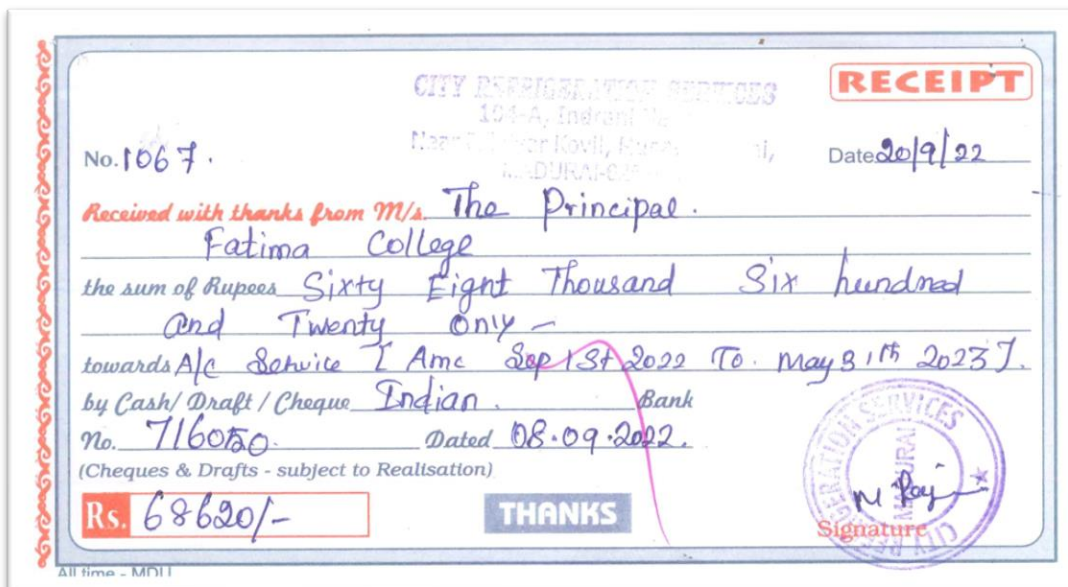 CITY REFRIGERATION SERVICES
RECEIPT
No. 1067.
Date 20/9/22
Received with thanks from M/s. The Principal.
Fatima College
the sum of Rupees Sixty Eight Thousand Six hundred
and Twenty Only –
towards A/c Service [ Amc Sep 1st 2022 To. May 31th 2023 ].
by Cash/ Draft / Cheque Indian. Bank
No. 716050. Dated 08.09.2022.
(Cheques & Drafts - subject to Realisation)
Rs. 68620/-
THANKS
Signature
CITY REFRIGERATION SERVICES
MADURAI
All time - MDU